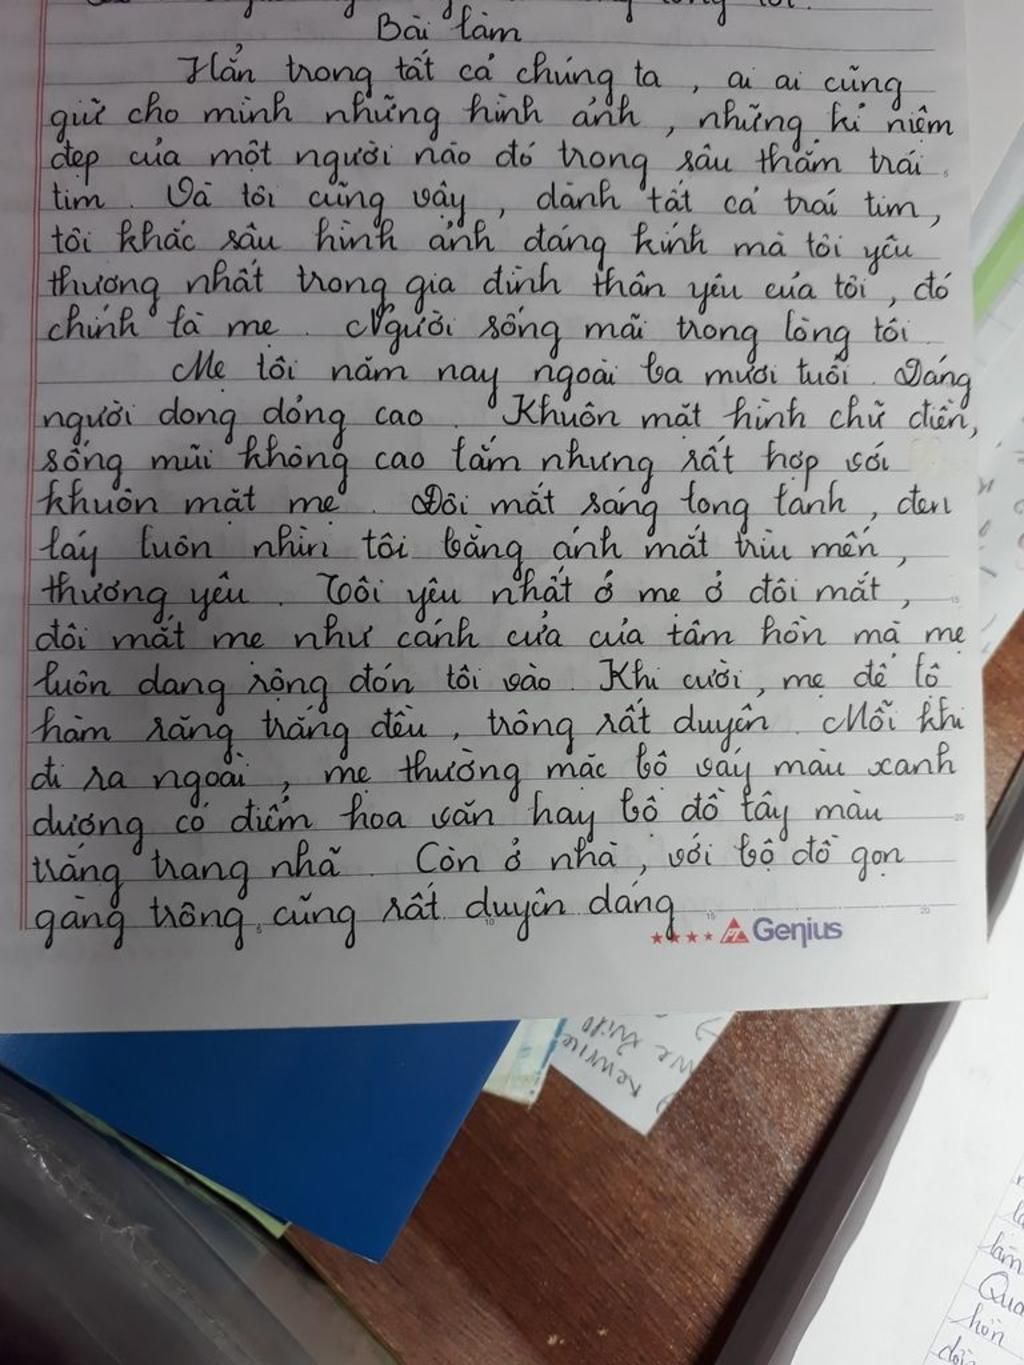 Bài làm
Hẳn trong tất cả chúng ta , ai ai cũng
giữ cho mình những hình ảnh , những kỉ niệm
đẹp của một người nào đó trong sâu thẳm trái
tim . Và tôi cũng vậy , dành tất cả trái tim ,
tôi khắc sâu hình ảnh đáng kính mà tôi yêu
thương nhất trong gia đình thân yêu của tôi , đó
chính là mẹ . Người sống mãi trong lòng tôi .
Mẹ tôi năm nay ngoài ba mươi tuổi . Dáng
người dong dỏng cao . Khuôn mặt hình chữ điền,
sống mũi không cao lắm nhưng rất hợp với
khuôn mặt mẹ . Đôi mắt sáng long lanh , đen
láy luôn nhìn tôi bằng ánh mắt trìu mến ,
thương yêu . Tôi yêu nhất ở mẹ ở đôi mắt ,
đôi mắt mẹ như cánh cửa của tâm hồn mà mẹ
luôn dang rộng đón tôi vào . Khi cười , mẹ để lộ
hàm răng trắng đều , trông rất duyên . Mỗi khi
đi ra ngoài , mẹ thường mặc bộ váy màu xanh
dương có điểm hoa văn hay bộ đồ tây màu
trắng trang nhã . Còn ở nhà , với bộ đồ gọn
gàng trông cũng rất duyên dáng
PT Genius